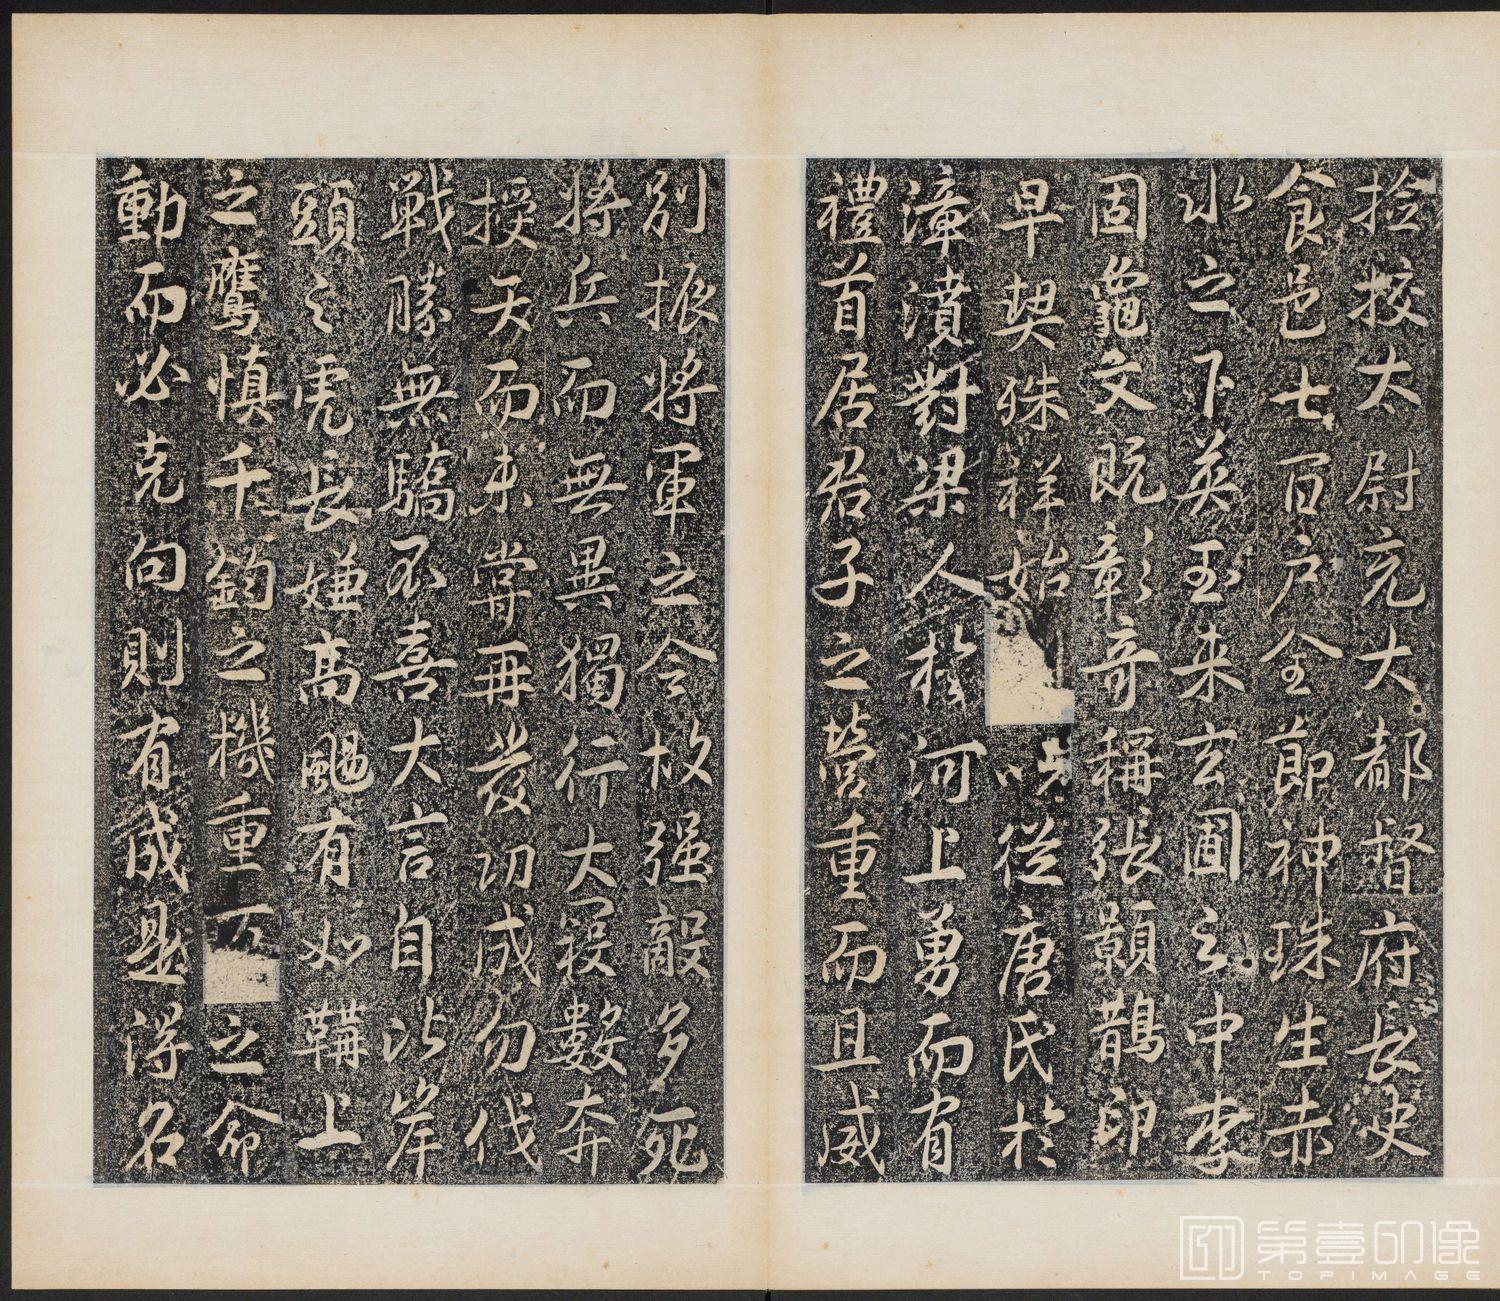 捡挍太尉充大都督府長史
食邑七百户全節神珠生赤
水之下英玉来玄圃之中李
固龜文既彰奇稱張顥鵲印
早契殊祥始
以從唐氏於
漳濆對梁人於河上勇而有
禮首居君子之營重而且威
別振將軍之令故强敵多死
將兵而無異獨行大寇數奔
授天而未甞再發功成勿伐
戰勝無驕不喜大言自比岸
頭之虎長嫌高颺有如鞲上
之鷹慎千鈞之機重
之命
動而必克向則有成是得名
第壹印像
TOPIMAGE